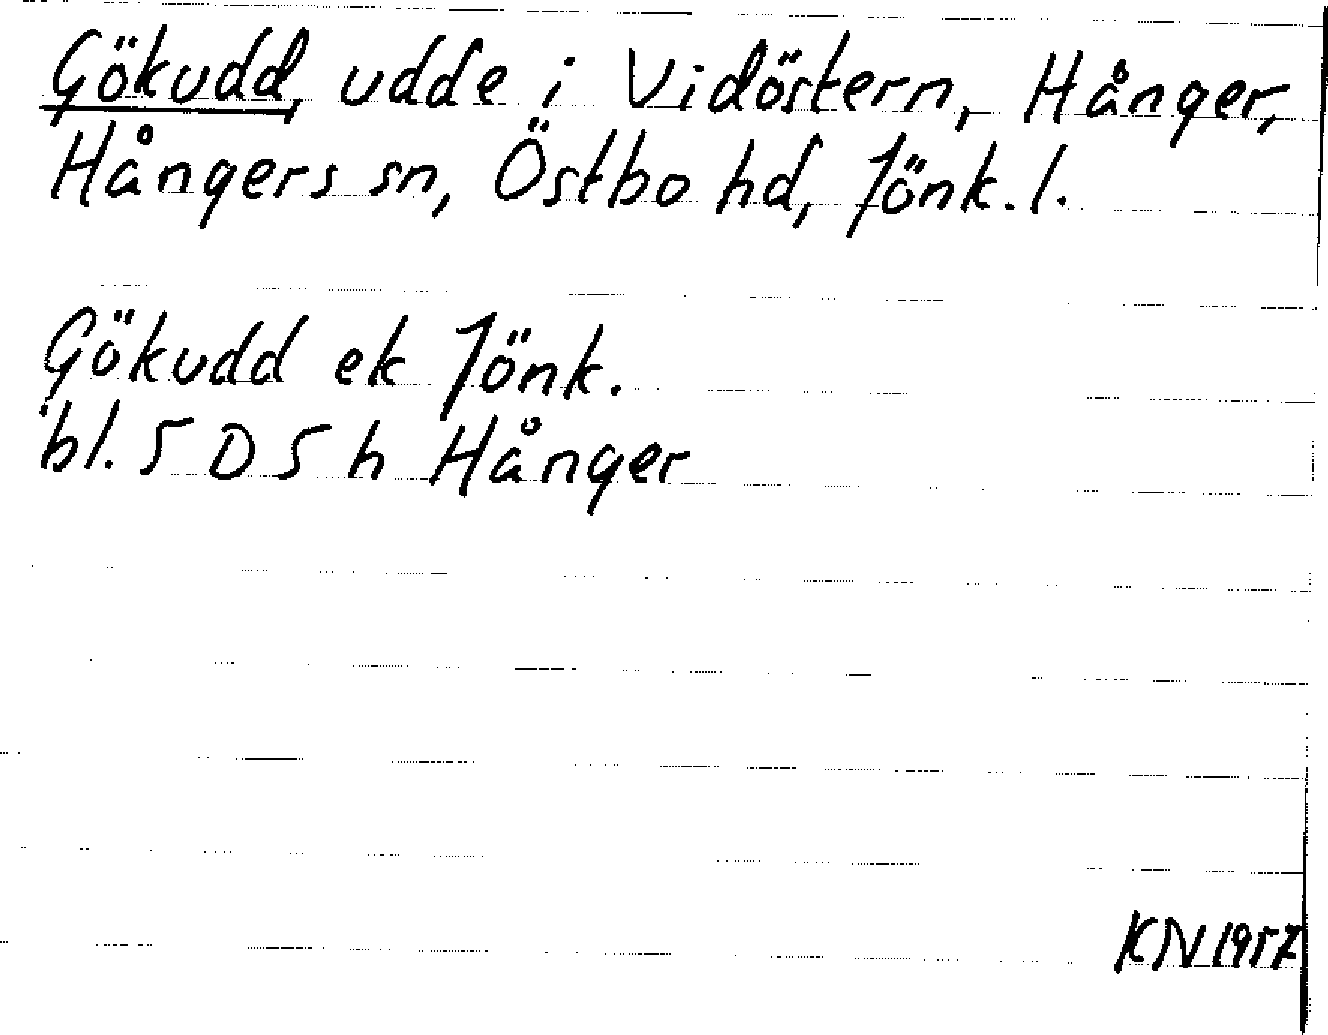 Gökudd, udde i Vidöstern, Hånger,
Hångers sn, Östbo hd, Jönk. l.
Gökudd ek Jönk.
bl. 5 D 5 h Hånger
KN 1957